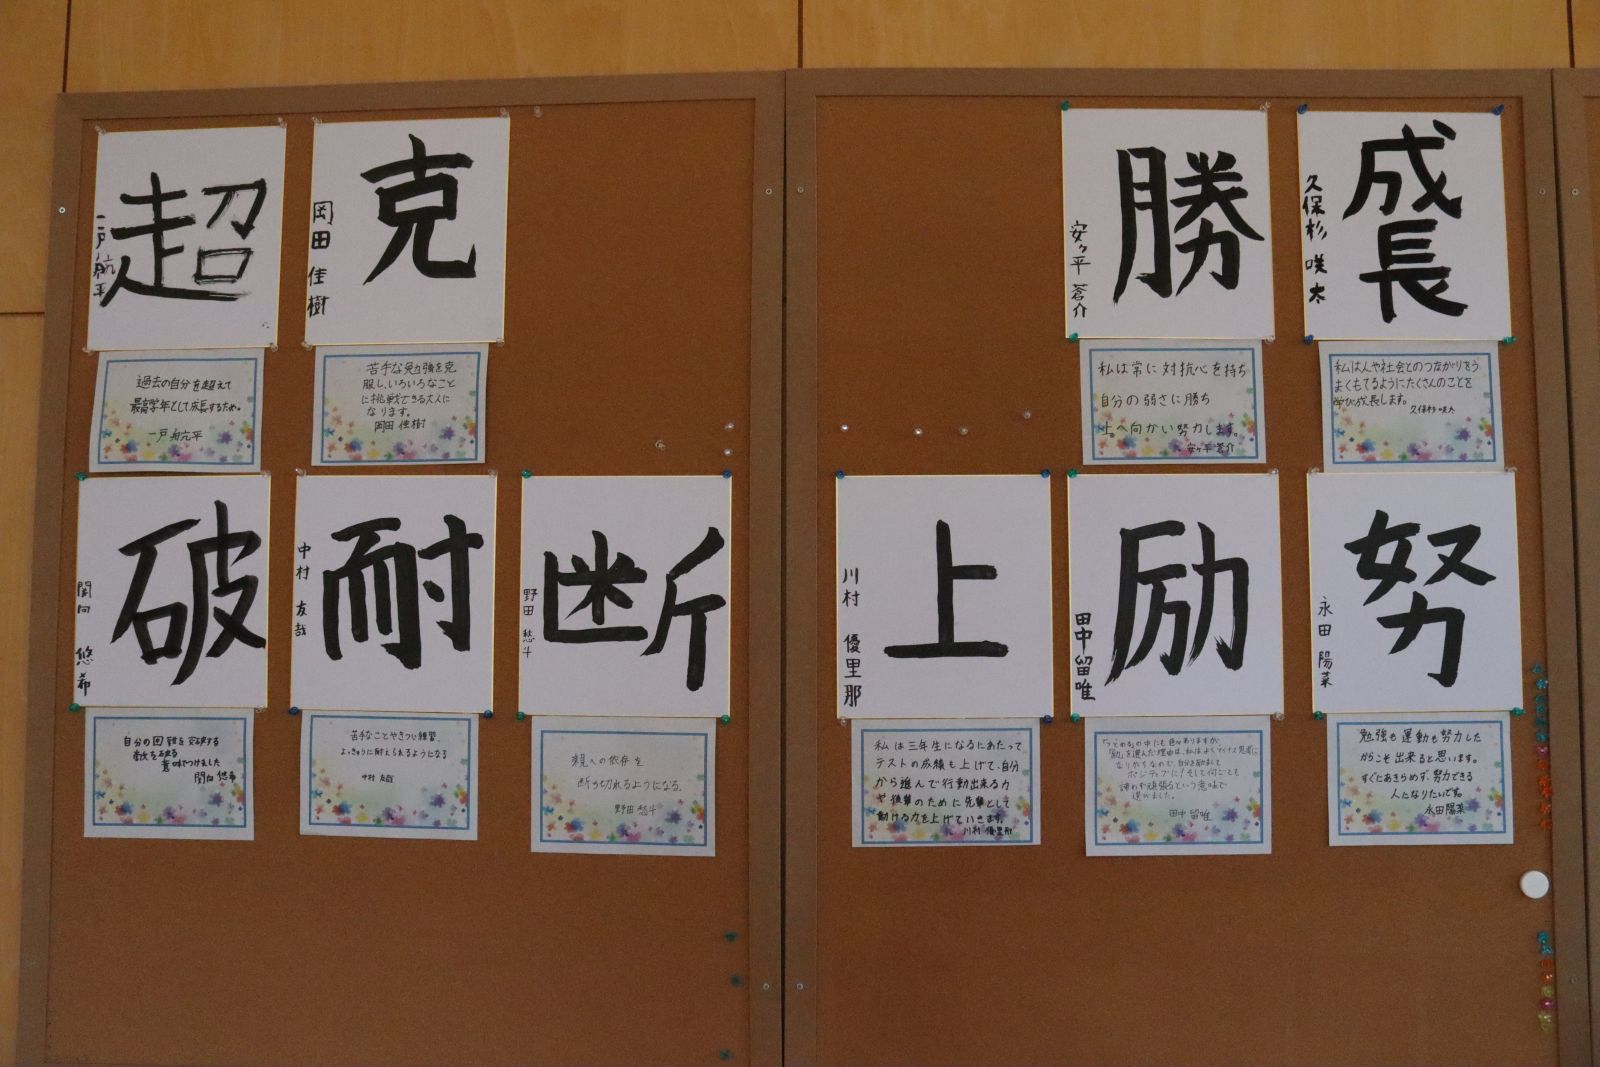 超
一戸 航平
過去の自分を超えて
最高学年として成長するため。
一戸 航平
克
岡田 佳樹
苦手な勉強を克
服し、いろいろなこと
に挑戦できる大人に
なります。
岡田 佳樹
勝
安ヶ平 蒼介
私は常に対抗心を持ち
自分の弱さに勝ち
上へ向かい努力します。
安ヶ平 蒼介
成長
久保杉 咲太
私は人や社会とのつながりをう
まくもてるようにたくさんのことを
学び成長します。
久保杉 咲太
破
関向 悠希
自分の困難を突破する
敵を破る
意味でつけました
関向 悠希
耐
中村 友哉
苦手なことやきつい練習、
よっきゅうに耐えられるようになる
中村 友哉
断
野田 愁斗
親への依存を
断ち切れるようになる。
野田 愁斗
上
川村 優里那
私は三年生になるにあたって
テストの成績も上げて、自分
から進んで行動出来る力
や後輩のために先輩として
動ける力を上げていきます。
川村 優里那
励
田中留唯
「つとめる」の中にも色々ありますが、
「励」を選んだ理由は、私はよくマイナス思考に
なりがちなので、自分を励まして
ポジティブに!そして何ごとも
諦めず頑張るという意味で
選びました。
田中 留唯
努
永田 陽菜
勉強も運動も努力した
からこそ出来ると思います。
すぐにあきらめず、努力できる
人になりたいです。
永田陽菜